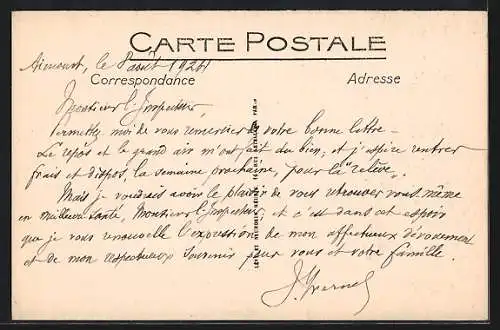 CARTE POSTALE
Aincourt, le août 1924
Correspondance
Adresse
Monsieur l'Inspecteur,
Permettez moi de vous remercier de votre bonne lettre -
Le repos et le grand air m'ont fait du bien, et j'espère rentrer
frais et dispos, la semaine prochaine, pour la "relève".
Mais je voudrais avoir le plaisir de vous retrouver vous même
en meilleure santé, Monsieur l'Inspecteur, et c'est dans cet espoir
que je vous renouvelle l'expression de mon affectueux dévouement
et de mon respectueux souvenir pour vous et votre famille.